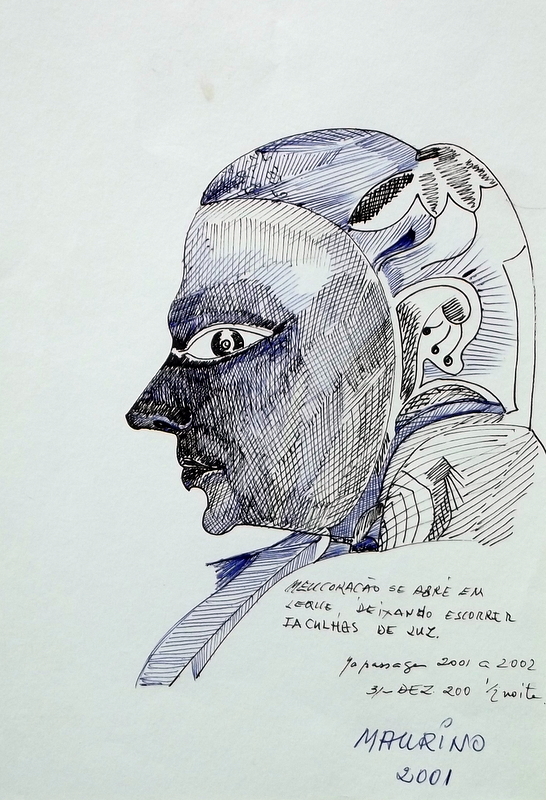 MEU CORAÇÃO SE ABRE EM
LEQUE, DEIXANDO ESCORRER
FAGULHAS DE LUZ.
passage 2001 a 2002
31-DEZ 200 ½ noite
MAURINO
2001